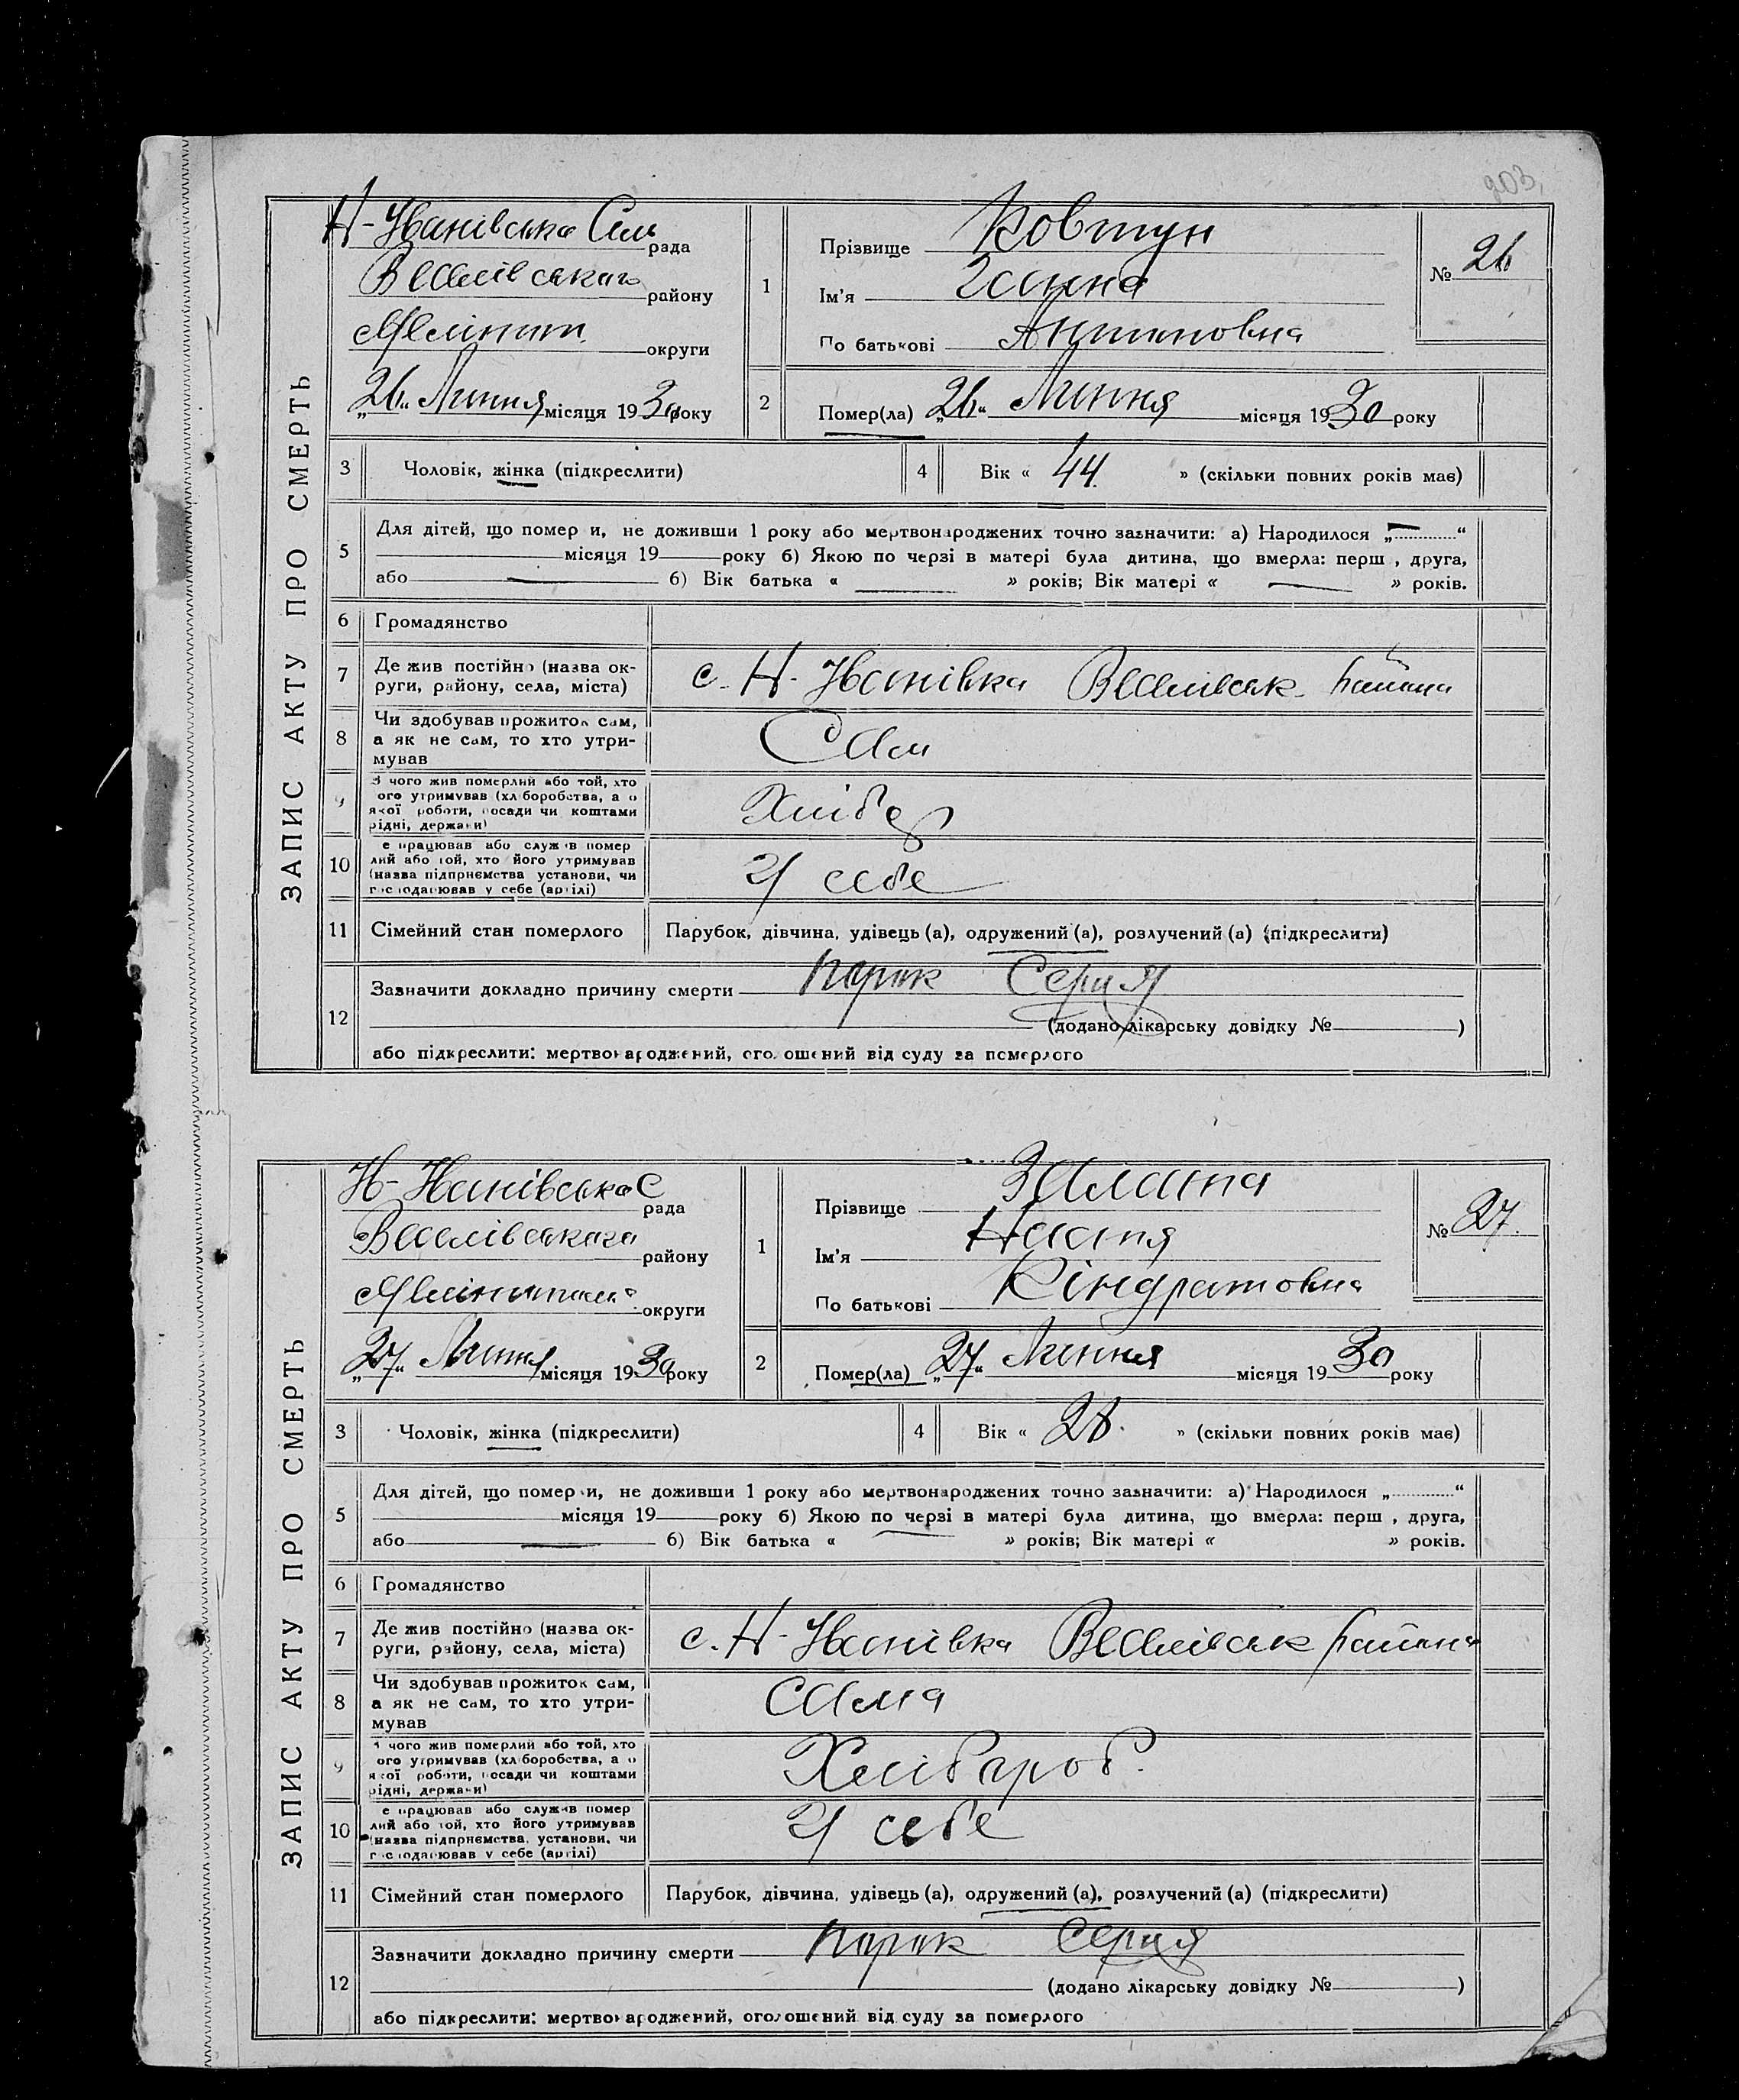 203
ЗАПИС АКТУ ПРО СМЕРТЬ
Н-Іванівська Сель рада
Веселівського району
Меліпит. округи
„26“ Липня місяця 1930 року
1
Прізвище Ковтун
Ім'я Ганна
По батькові Антиповна
№ 26
2
Помер(ла) „26“ Липня місяця 1930 року
3 Чоловік, жінка (підкреслити)
4 Вік « 44. » (скільки повних років має)
5
Для дітей, що помер и, не доживши 1 року або мертвонароджених точно зазначити: а) Народилося „ “
місяця 19 року б) Якою по черзі в матері була дитина, що вмерла: перш , друга,
або б) Вік батька « » років; Вік матері « » років.
6 Громадянство
7 Де жив постійно (назва ок-
руги, району, села, міста)
с. Н-Іванівка Веселівськ района
8 Чи здобував прожиток сам,
а як не сам, то хто утри-
мував
Сам
9 З чого жив померлий або той, хто
ого утримував (хліборобства, а о
якої роботи, посади чи коштами
рідні, держави)
Хлібор
10 е працював або служив помер
лий або той, хто його утримував
(назва підприємства установи, чи
господарював у себе (артілі)
У себе
11 Сімейний стан померлого
Парубок, дівчина, удівець (а), одружений (а), розлучений (а) (підкреслити)
12
Зазначити докладно причину смерти порок Серця
(додано лікарську довідку № )
або підкреслити: мертвонароджений, оголошений від суду за померлого
ЗАПИС АКТУ ПРО СМЕРТЬ
Н-Іванівська С рада
Веселівського району
округи
„27“ Липня місяця 1930 року
1
Прізвище Залата
Ім'я Настя
По батькові Кіндратовна
№ 27.
2
Помер(ла) „27“ Липня місяця 1930 року
3 Чоловік, жінка (підкреслити)
4 Вік « 28. » (скільки повних років має)
5
Для дітей, що помер и, не доживши 1 року або мертвонароджених точно зазначити: а) Народилося „ “
місяця 19 року б) Якою по черзі в матері була дитина, що вмерла: перш , друга,
або б) Вік батька « » років; Вік матері « » років.
6 Громадянство
7 Де жив постійно (назва ок-
руги, району, села, міста)
с. Н-Іванівка Веселівськ района
8 Чи здобував прожиток сам,
а як не сам, то хто утри-
мував
Сама
9 чого жив померлий або той, хто
ого утримував (хліборобства, а о
якої роботи, посади чи коштами
рідні, держави)
Хлібароб.
10 е працював або служив помер
лий або той, хто його утримував
(назва підприємства, установи, чи
господарював у себе (артілі)
У себе
11 Сімейний стан померлого
Парубок, дівчина, удівець (а), одружений (а), розлучений (а) (підкреслити)
12
Зазначити докладно причину смерти порок Серця
(додано лікарську довідку № )
або підкреслити: мертвонароджений, оголошений від суду за померлого